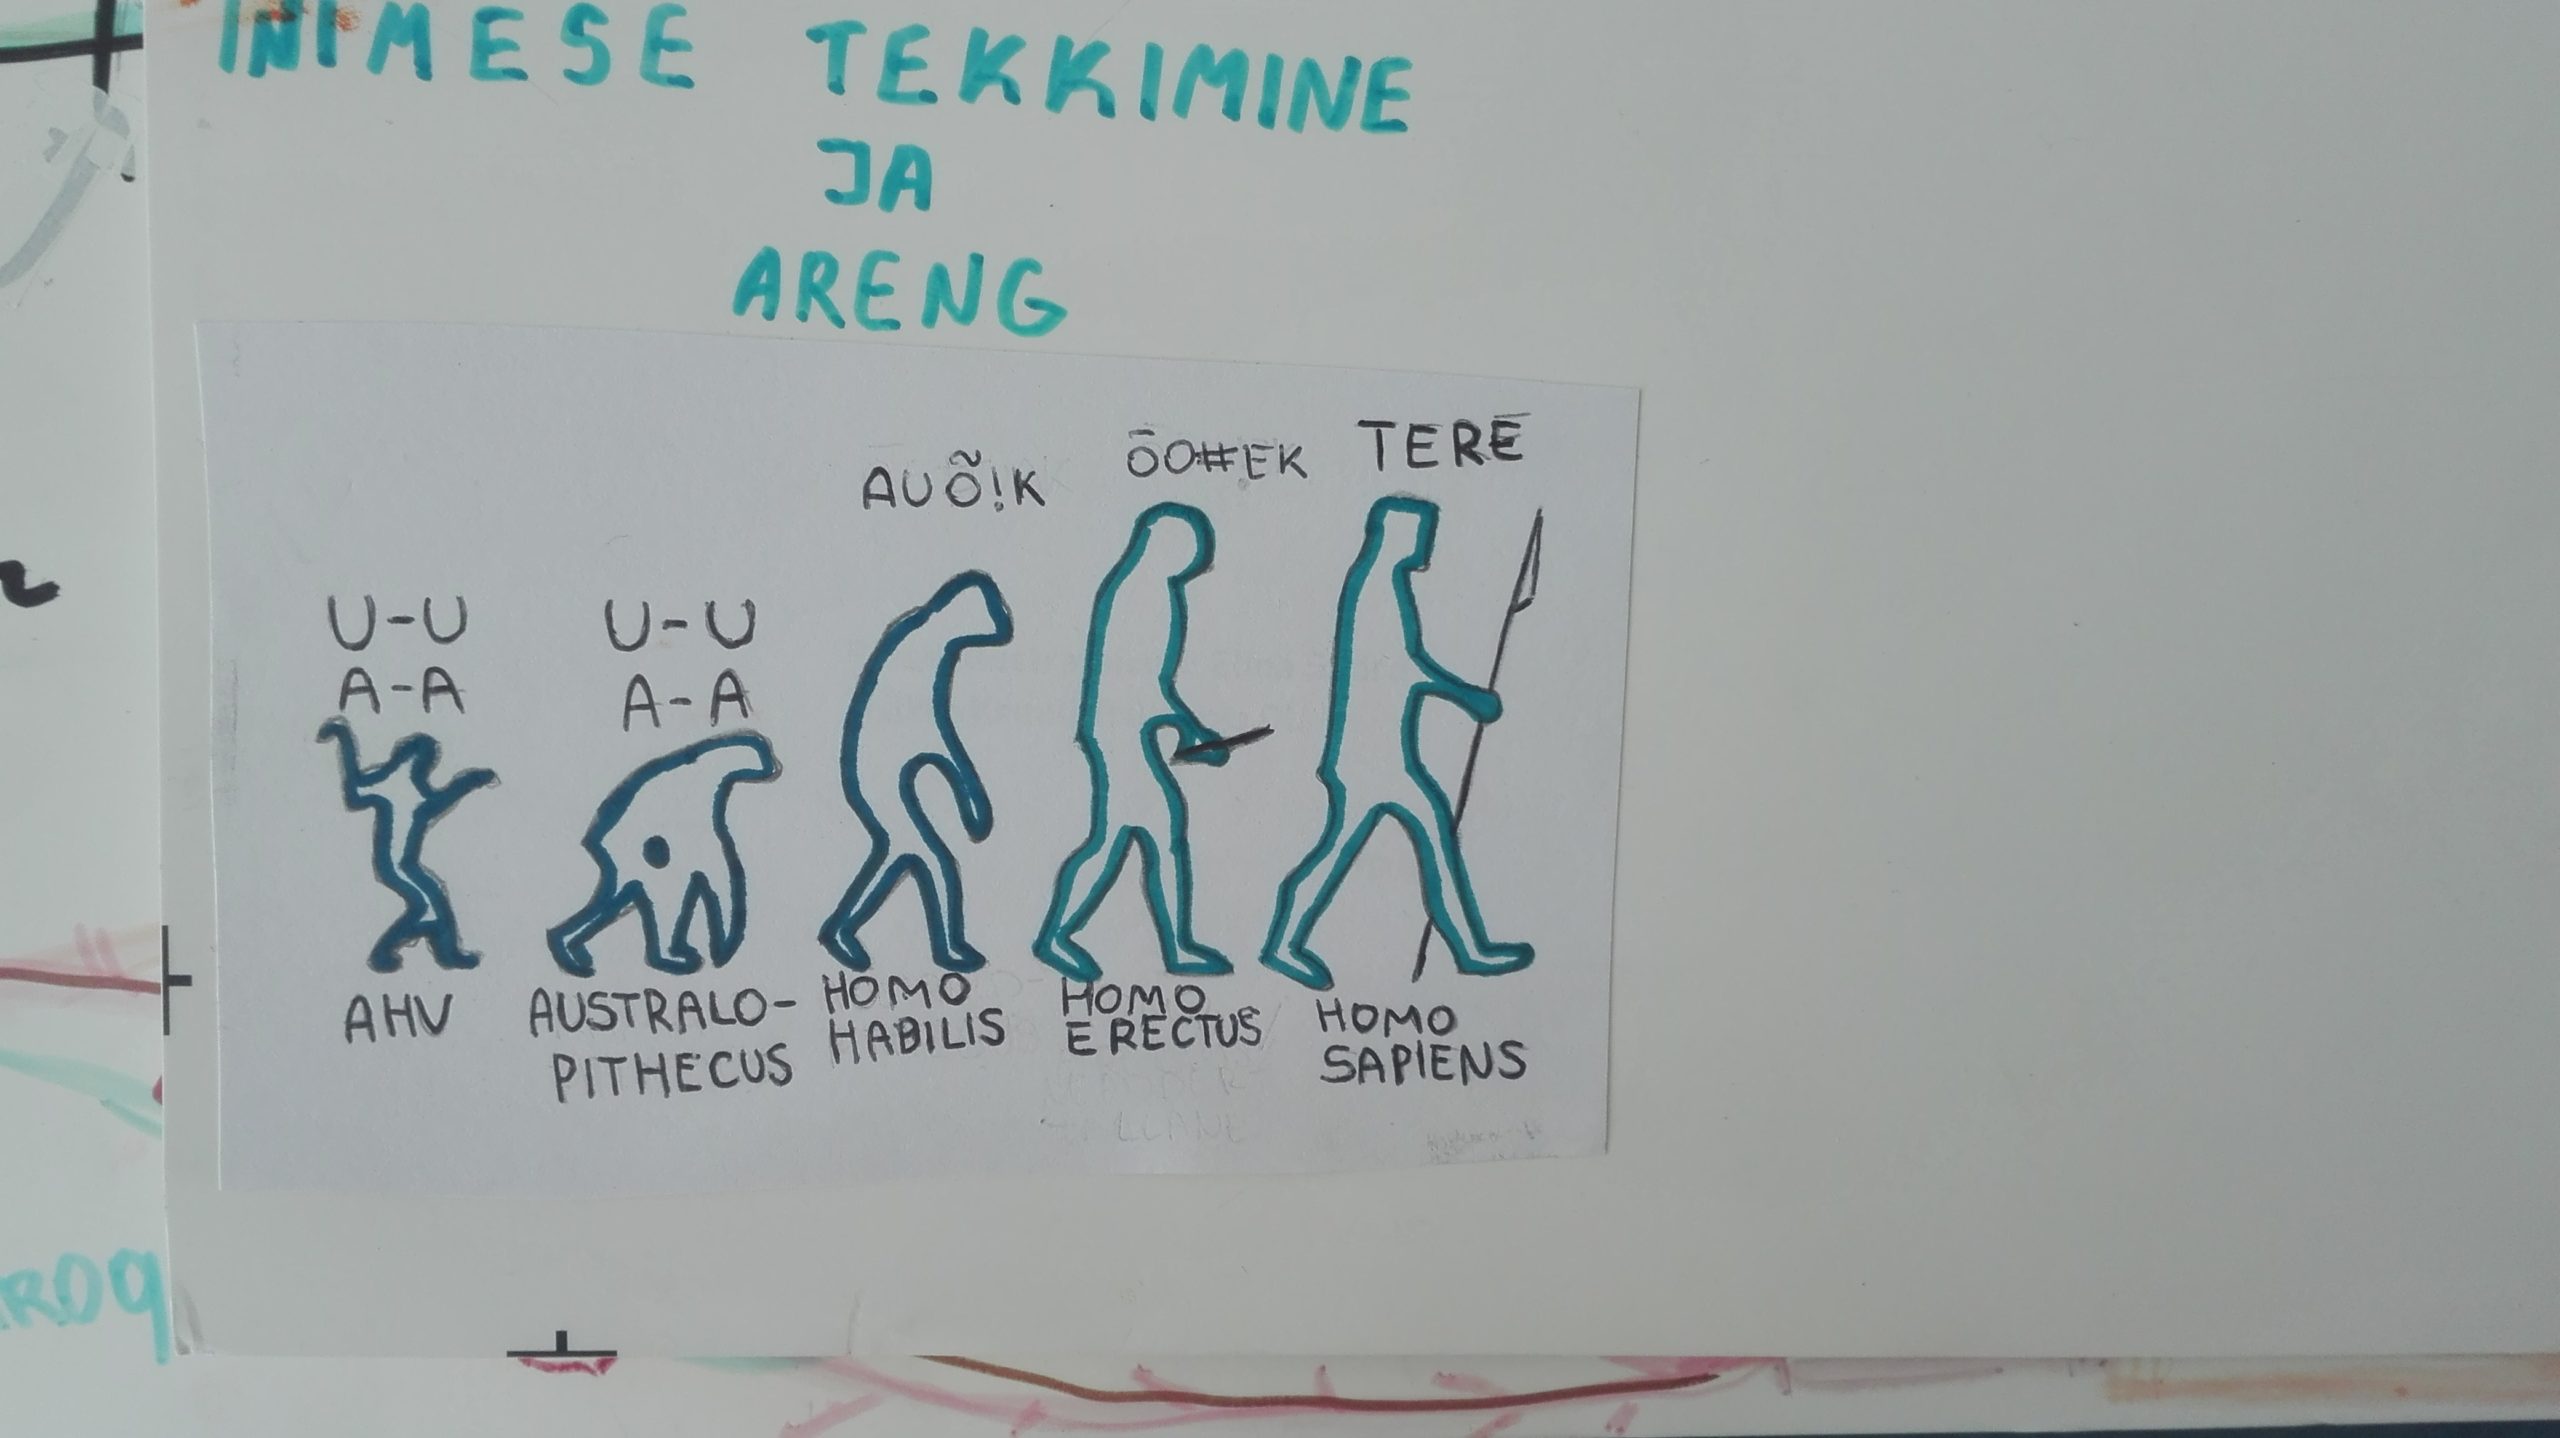 INIMESE TEKKIMINE
JA
ARENG
U-U
A-A
U-U
A-A
AUÕ!K
ŌO#EK
TERĒ
AHV
AUSTRALO-
PITHECUS
HOMO
HABILIS
HOMO
ERECTUS
HOMO
SAPIENS